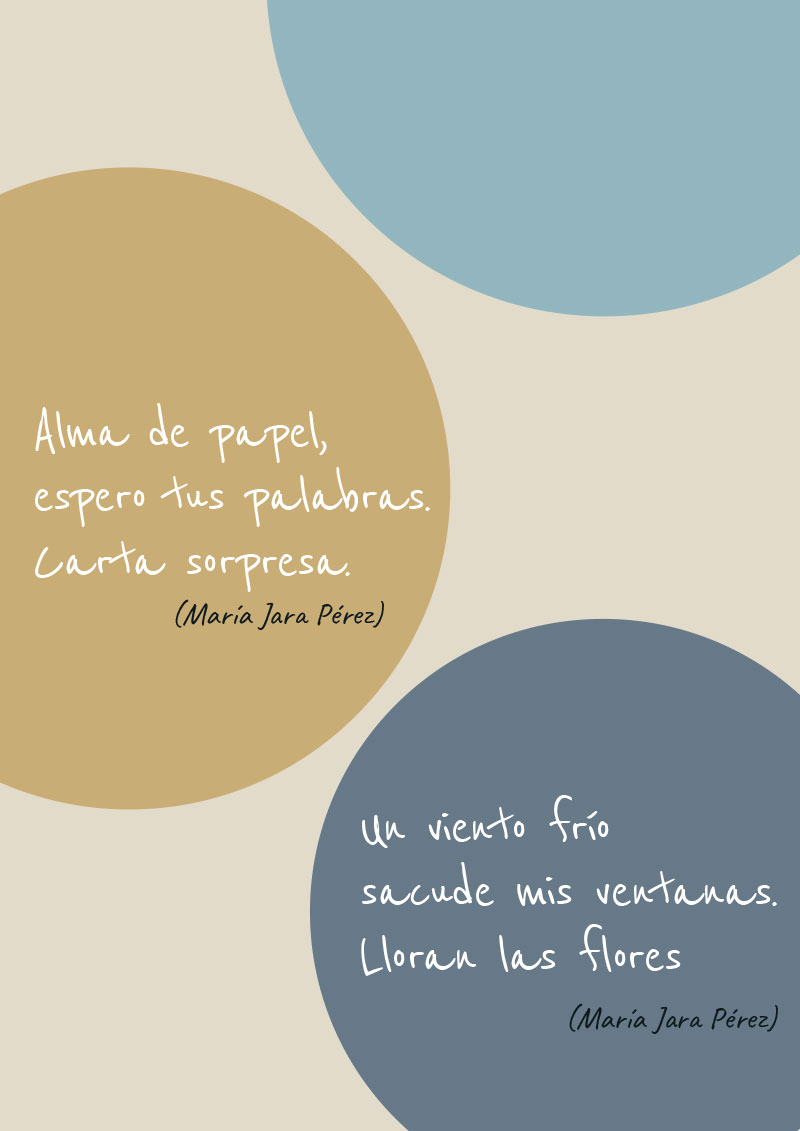 Alma de papel,
espero tus palabras.
Carta sorpresa.
(María Jara Pérez)
Un viento frío
sacude mis ventanas.
Lloran las flores
(María Jara Pérez)